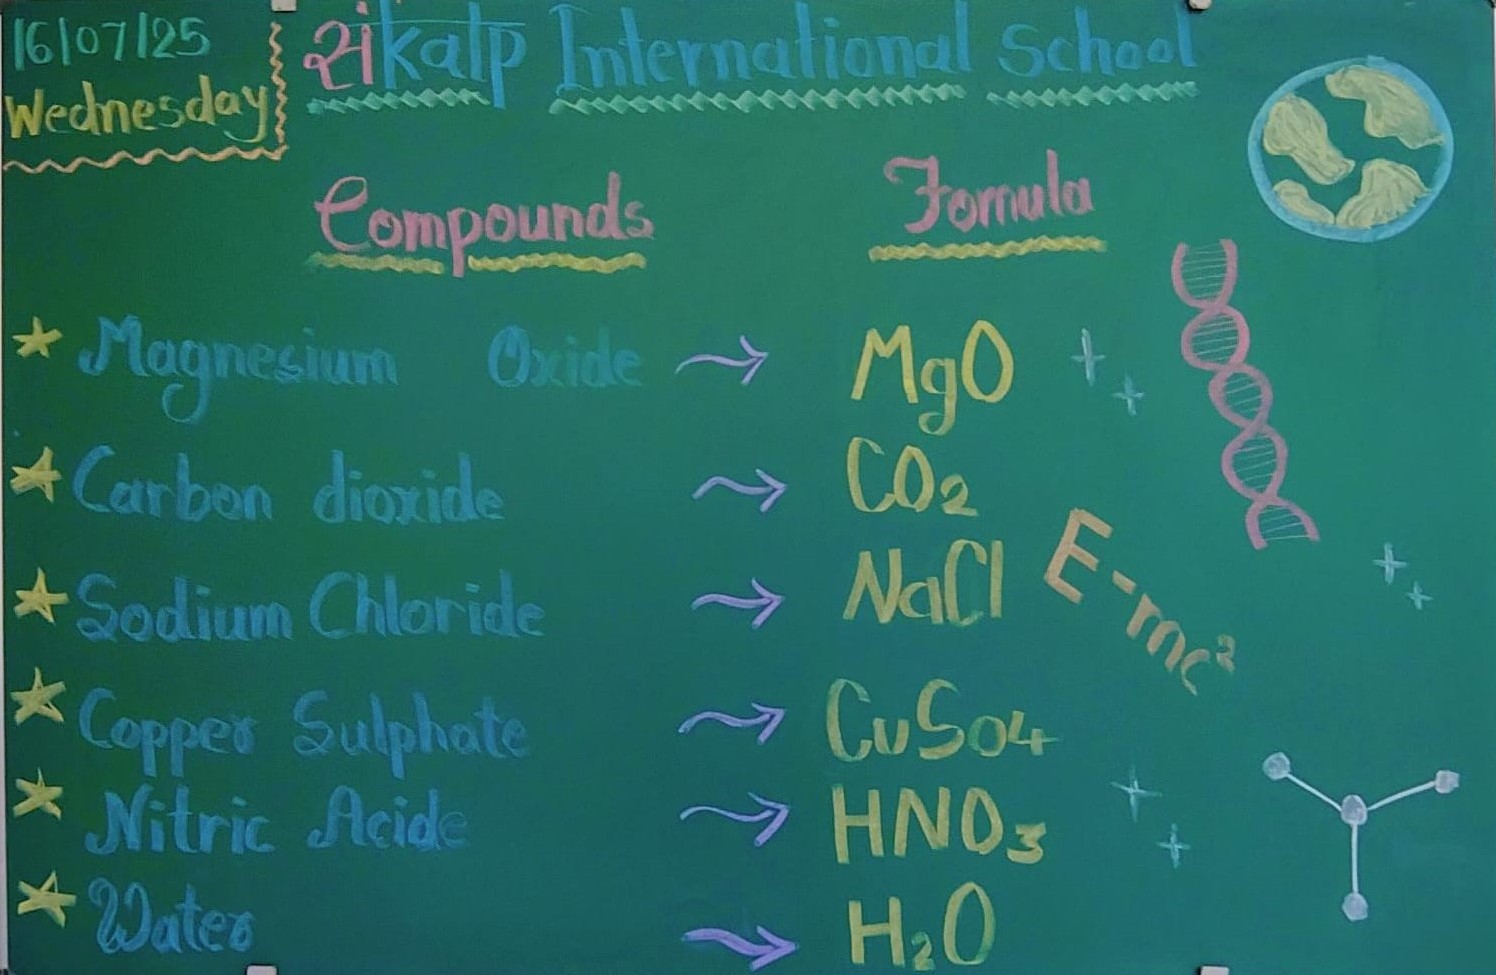 16/07/25
Wednesday
સંkalp International School
Compounds Fomula
Magnesium Oxide → MgO
Carbon dioxide → CO₂
Sodium Chloride → NaCl
E-mc²
Copper Sulphate → CuSO4
Nitric Acide → HNO₃
Water → H₂O